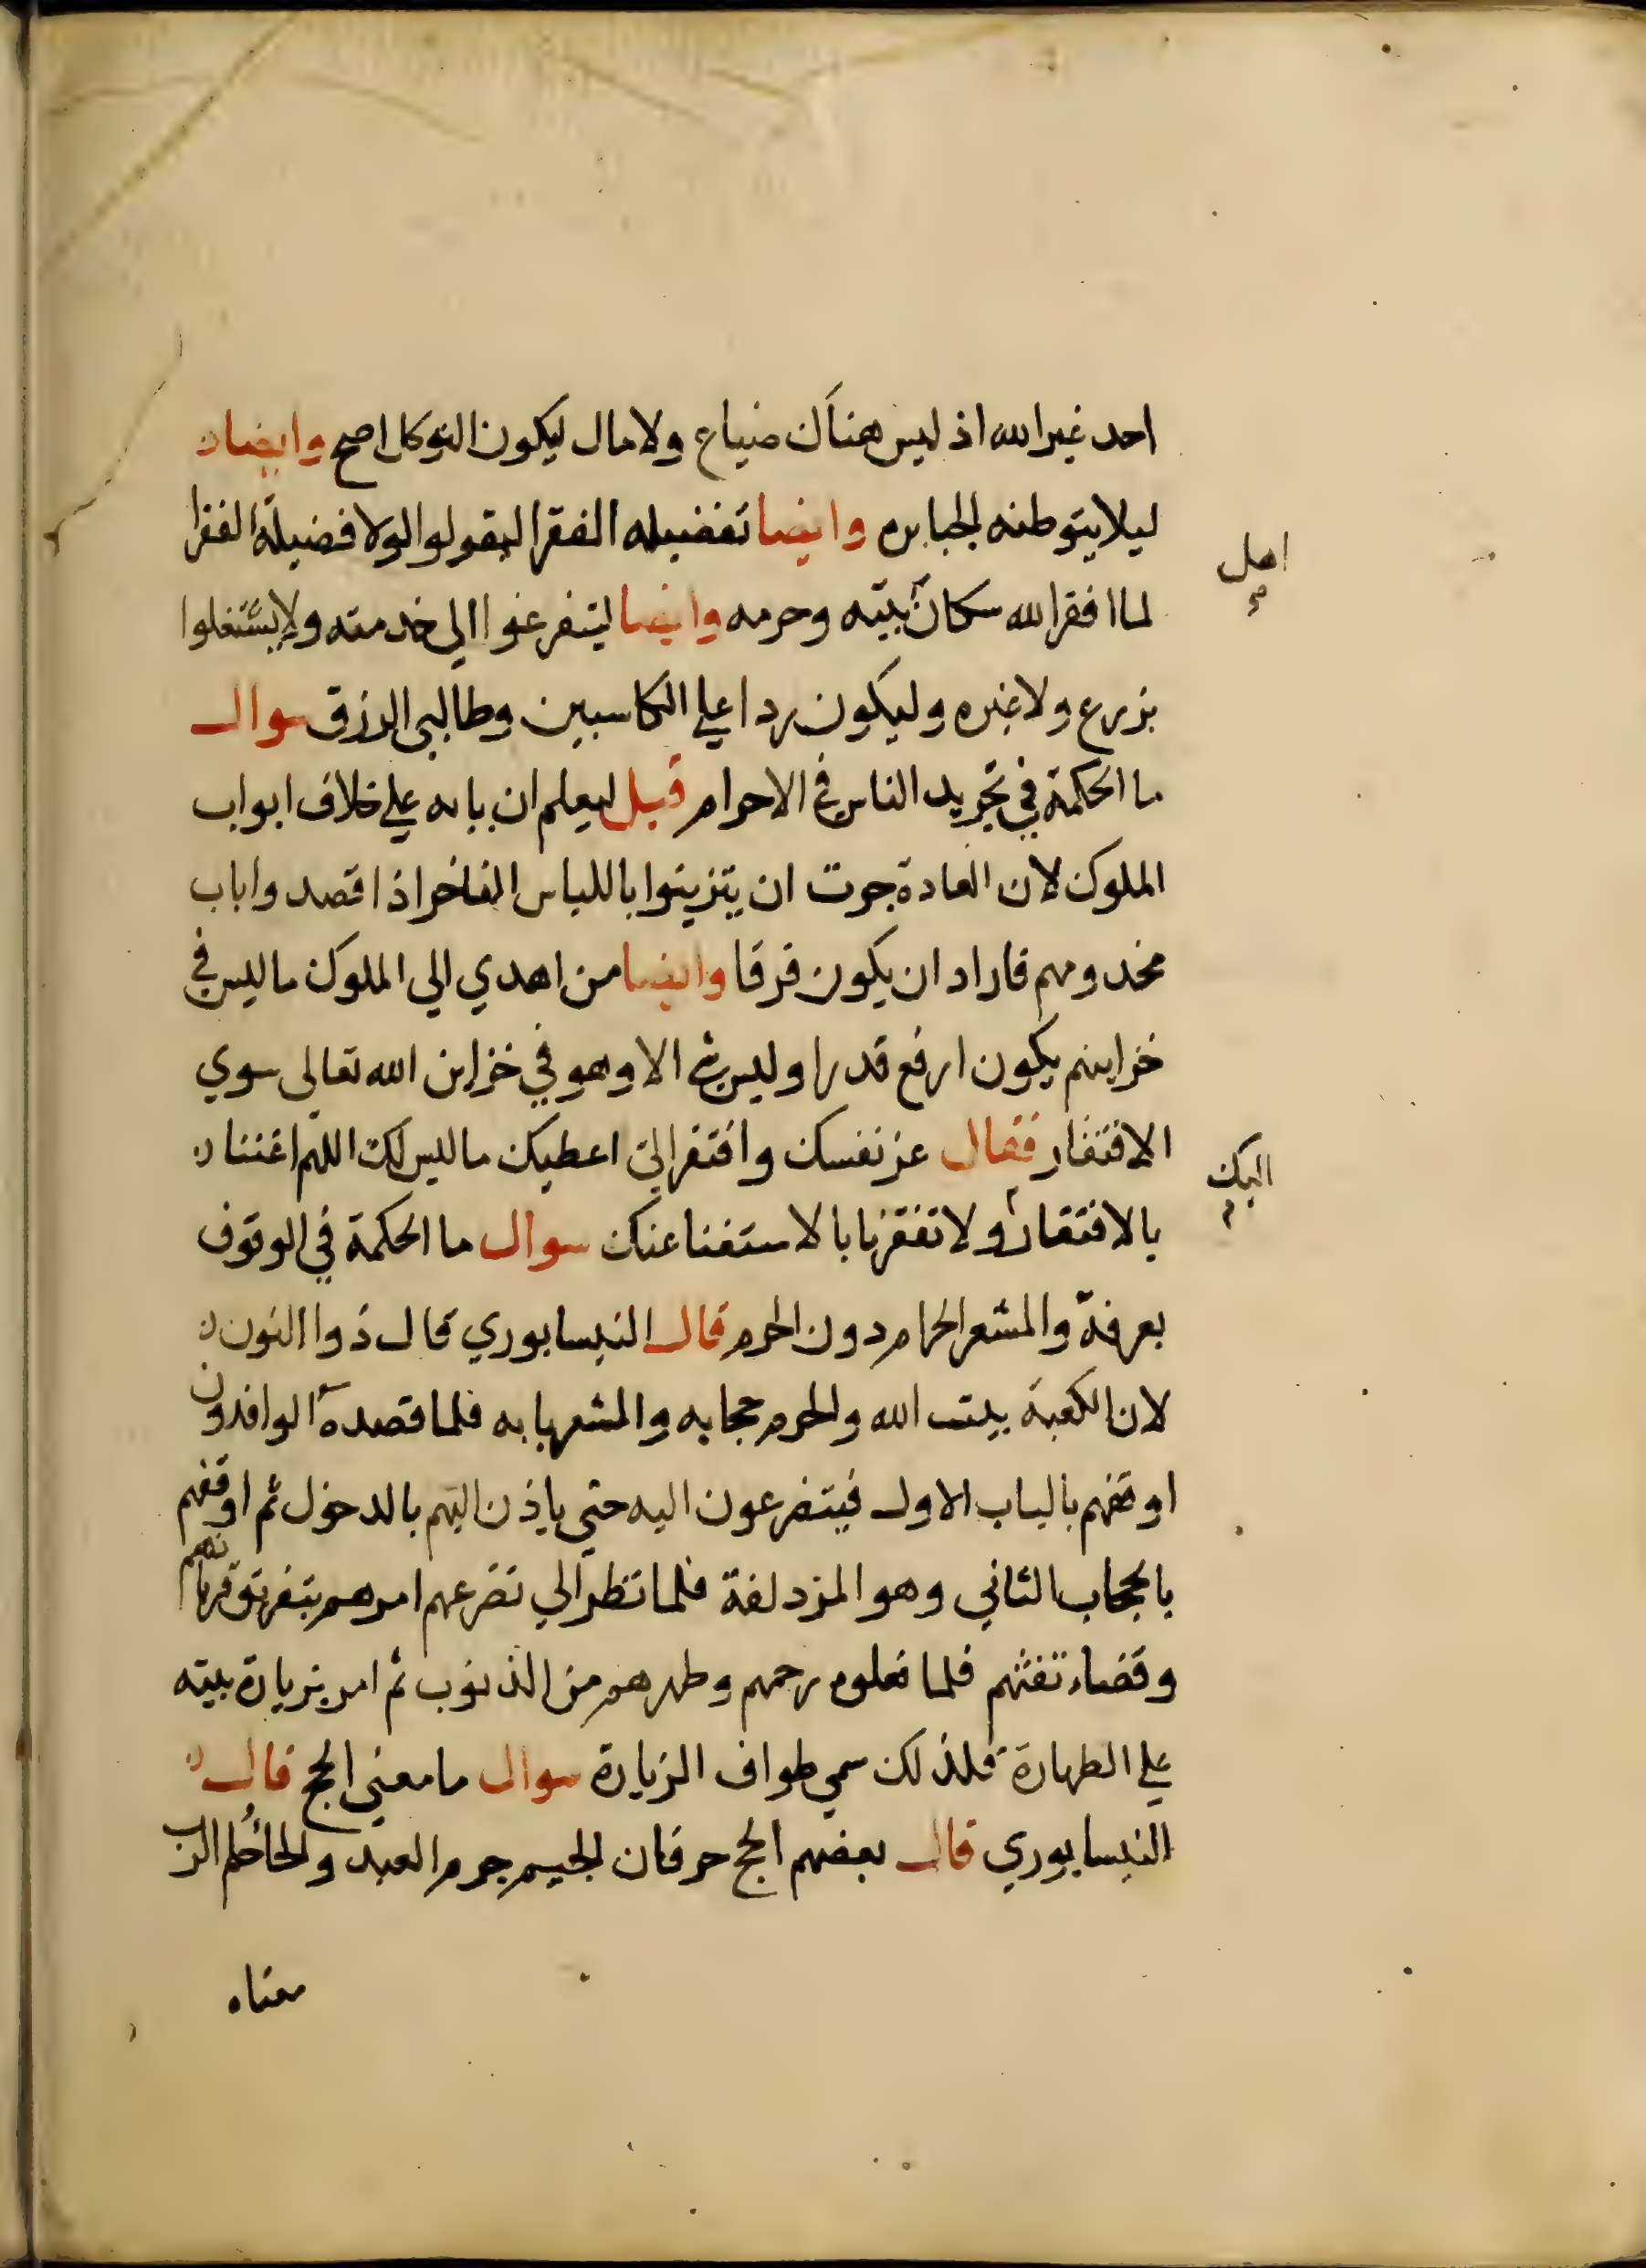 احد غير الله اذ ليس هناك ضياع ولا مال ليكون التوكل اصح وايضا
ليلا يتوطنه الجبابره وايضا تفضيله الفقرا ليقولوا لولا فضيلة الفقرا
اهل
لما افقر الله سكان بيته وحرمه وايضا ليتفرغوا الي خدمته ولا يشتغلوا
بزرع ولا غيره وليكون ردا علي الكاسبين وطالبي الرزق سوال
ما الحكمة في تجريد الناس في الاحرام قيل ليعلم ان بابه علي خلاف ابواب
الملوك لان العادة جرت ان يتزينوا باللباس الفاخر اذا قصدوا باب
مخدومهم فاراد ان يكون فرقا وايضا من اهدي الي الملوك ما ليس في
خزاينهم يكون ارفع قدرا وليس شي الا وهو في خزاين الله تعالى سوي
الافتقار فقال عز نفسك وافتقر الي اعطيك ما ليس لك اللهم اغننا
اليك
بالافتقار ولا تفقرنا بالاستغنا عنك سوال ما الحكمة في الوقوف
بعرفة والمشعر الحرام دون الحرم قال النيسابوري قال ذوا النون
لان الكعبة بيت الله والحرم حجابه والمشعر بابه فلما قصده الوافدون
اوقفهم بالباب الاول فيتضرعون اليه حتي ياذن اليهم بالدخول ثم اوقفهم
بالحجاب الثاني وهو المزدلفة فلما نظر الي تضرعهم امرهم بتفريق قربانهم
وقضاء تفثهم فلما فعلوه رحمهم وطهرهم من الذنوب ثم امر بزيارة بيته
علي الطهارة فلذلك سمي طواف الزيارة سوال ما معني الحج قال
النيسابوري قال بعضهم الحج حرفان الجيم جرم العبد والحا حلم الرب
معناه